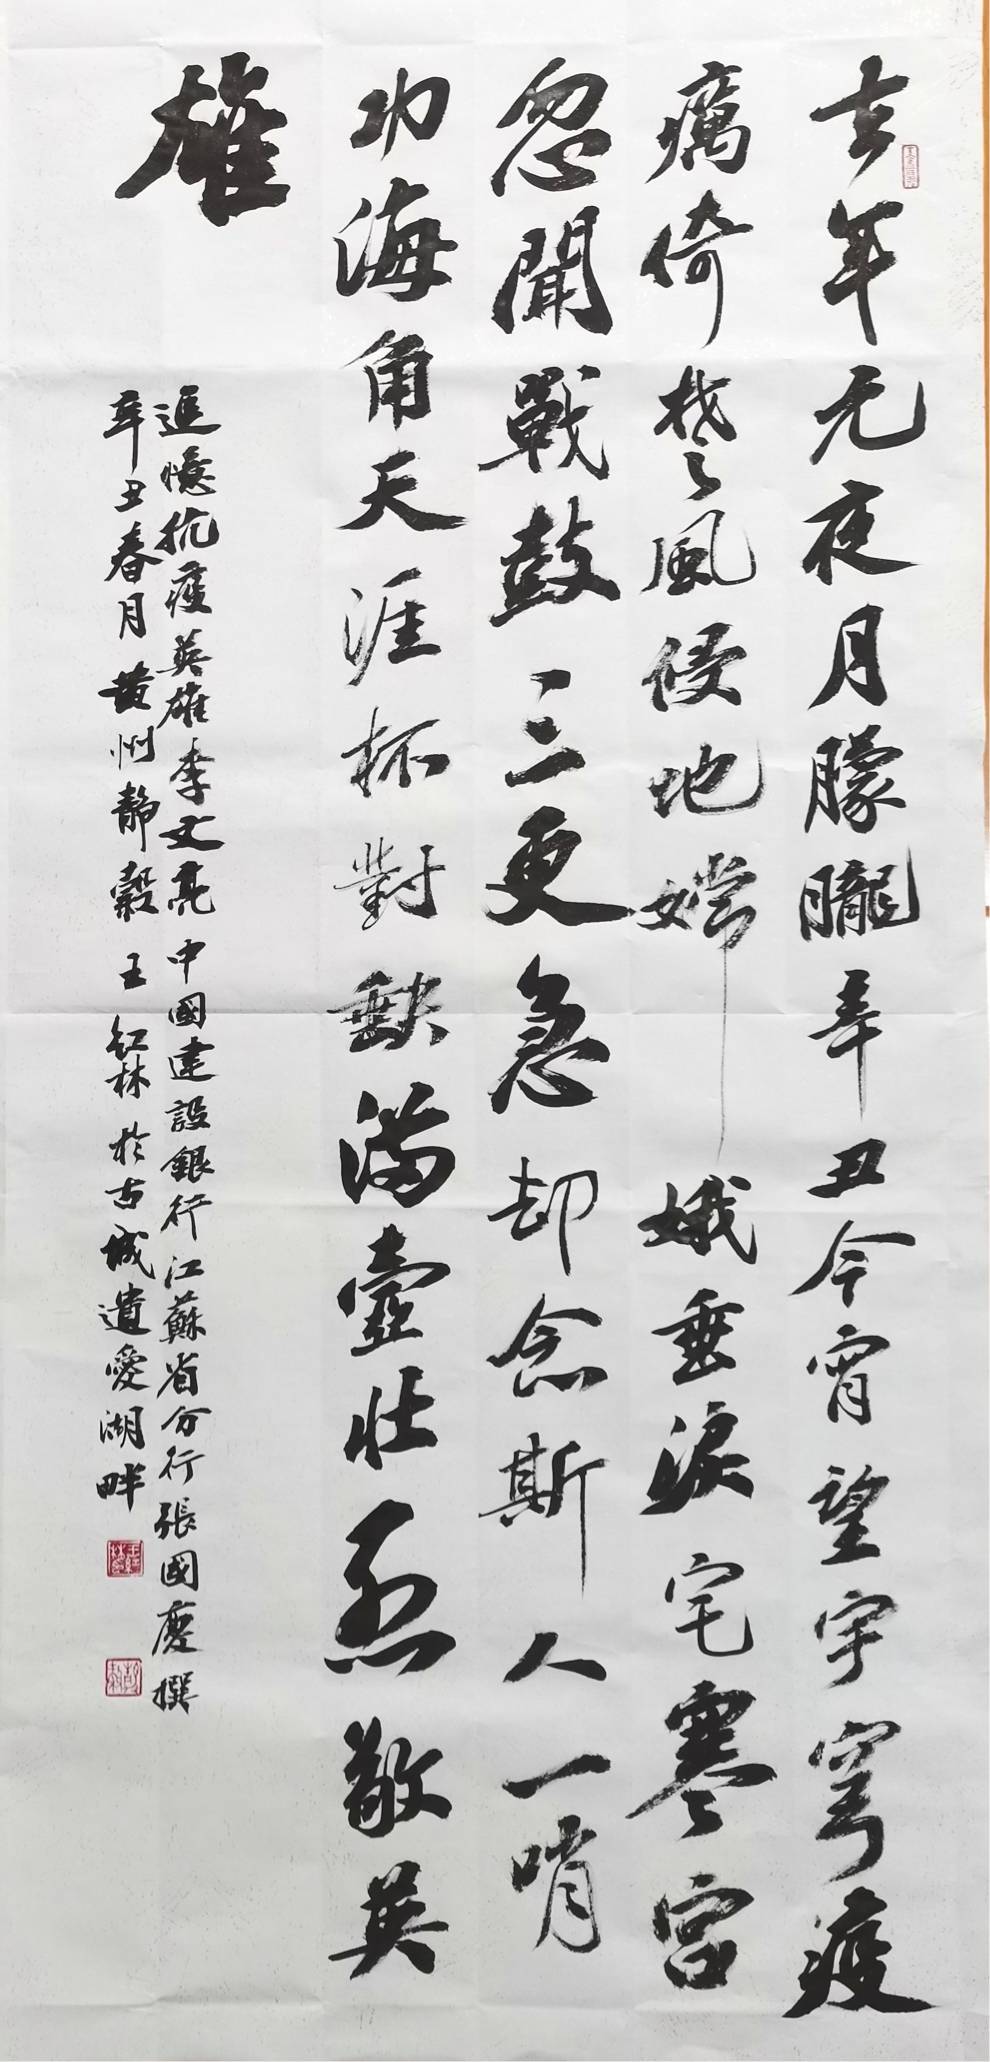 去年元夜月朦朧辛丑今宵望宇穹疫
癘倚楚風侵地嫦娥垂淚宅寒宮
忽聞戰鼓三更急却念斯人一哨
功海角天涯杯對缺滿壺壯烈敬英
雄
追憶抗疫英雄李文亮中國建設銀行江蘇省分行張國慶撰
辛丑春月黄州靜穀王紅林於古城遺愛湖畔